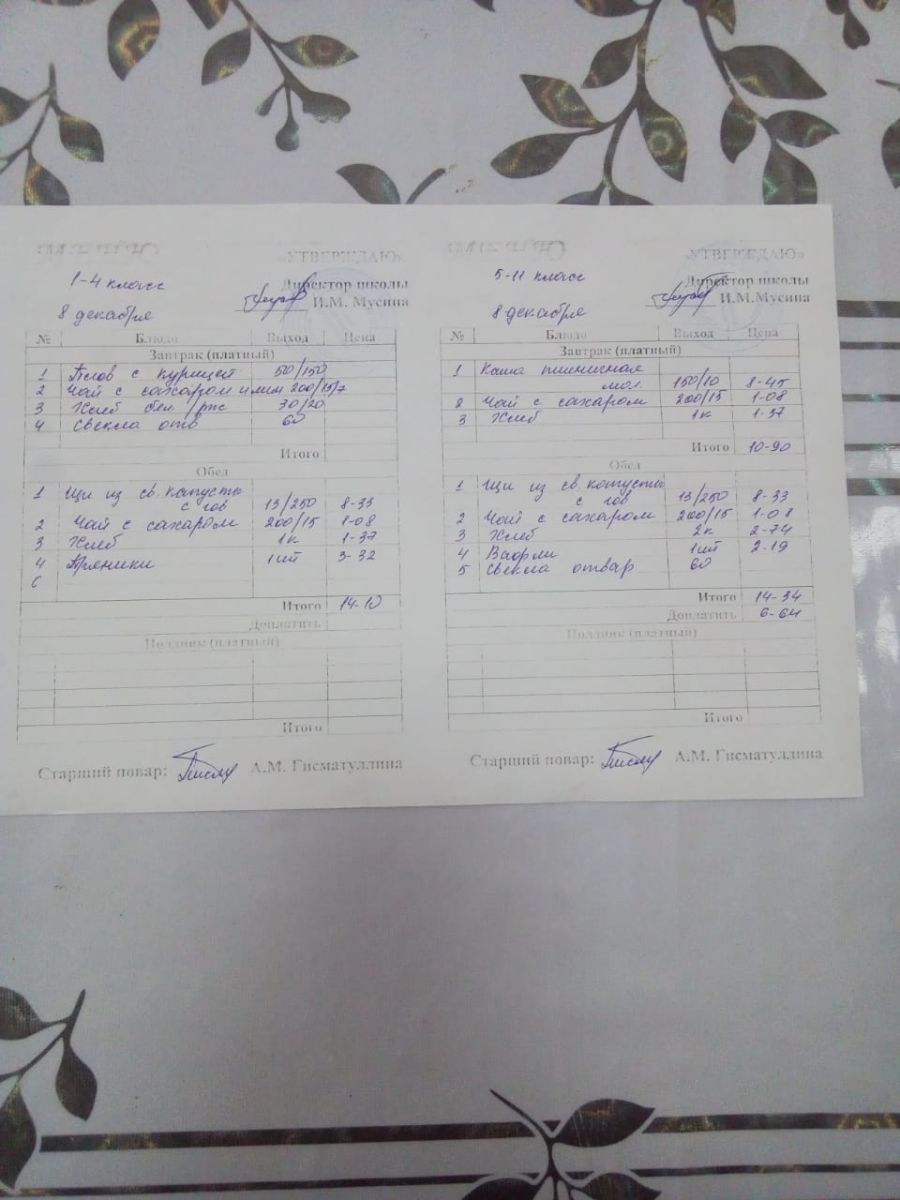 Меню
«УТВЕРЖДАЮ»
1-4 класс
Директор школы
И.М. Мусина
8 декабря
№ Блюдо Выход Цена
Завтрак (платный)
1 Плов с курицей 50/150
2 Чай с сахаром и лим 200/15/7
3 Хлеб бел /рж 30/20
4 Свекла отв 60
Итого
Обед
1 Щи из св. капусты
с гов 13/250 8-33
2 Чай с сахаром 200/15 1-08
3 Хлеб 1к 1-37
4 Пряники 1шт 3-32
Итого 14-10
Доплатить
Полдник (платный)
Итого
Старший повар: А.М. Гисматуллина
Меню
«УТВЕРЖДАЮ»
5-11 класс
Директор школы
И.М.Мусина
8 декабря
№ Блюдо Выход Цена
Завтрак (платный)
1 Каша пшеничная
мол. 150/10 8-45
2 Чай с сахаром 200/15 1-08
3 Хлеб 1к 1-37
Итого 10-90
Обед
1 Щи из св. капусты
с гов 13/250 8-33
2 Чай с сахаром 200/15 1-08
3 Хлеб 2к 2-74
4 Вафли 1шт 2-19
5 Свекла отвар 60
Итого 14-34
Доплатить 6-64
Полдник (платный)
Итого
Старший повар: А.М. Гисматуллина